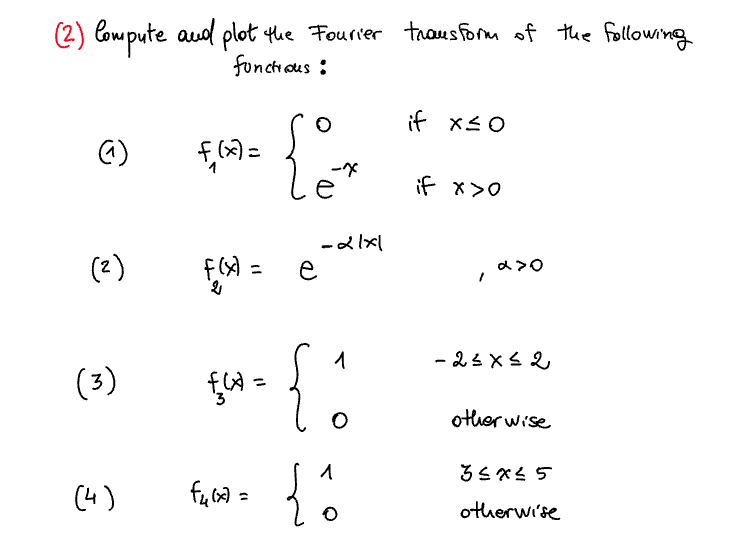 (2) Compute and plot the Fourier transform of the following
functions :
(1) f₁(x) = { 0 if x ≤ 0
e^{-x} if x > 0
(2) f₂(x) = e^{-α|x|} , α>0
(3) f₃(x) = { 1 -2 ≤ x ≤ 2
0 otherwise
(4) f₄(x) = { 1 3 ≤ x ≤ 5
0 otherwise